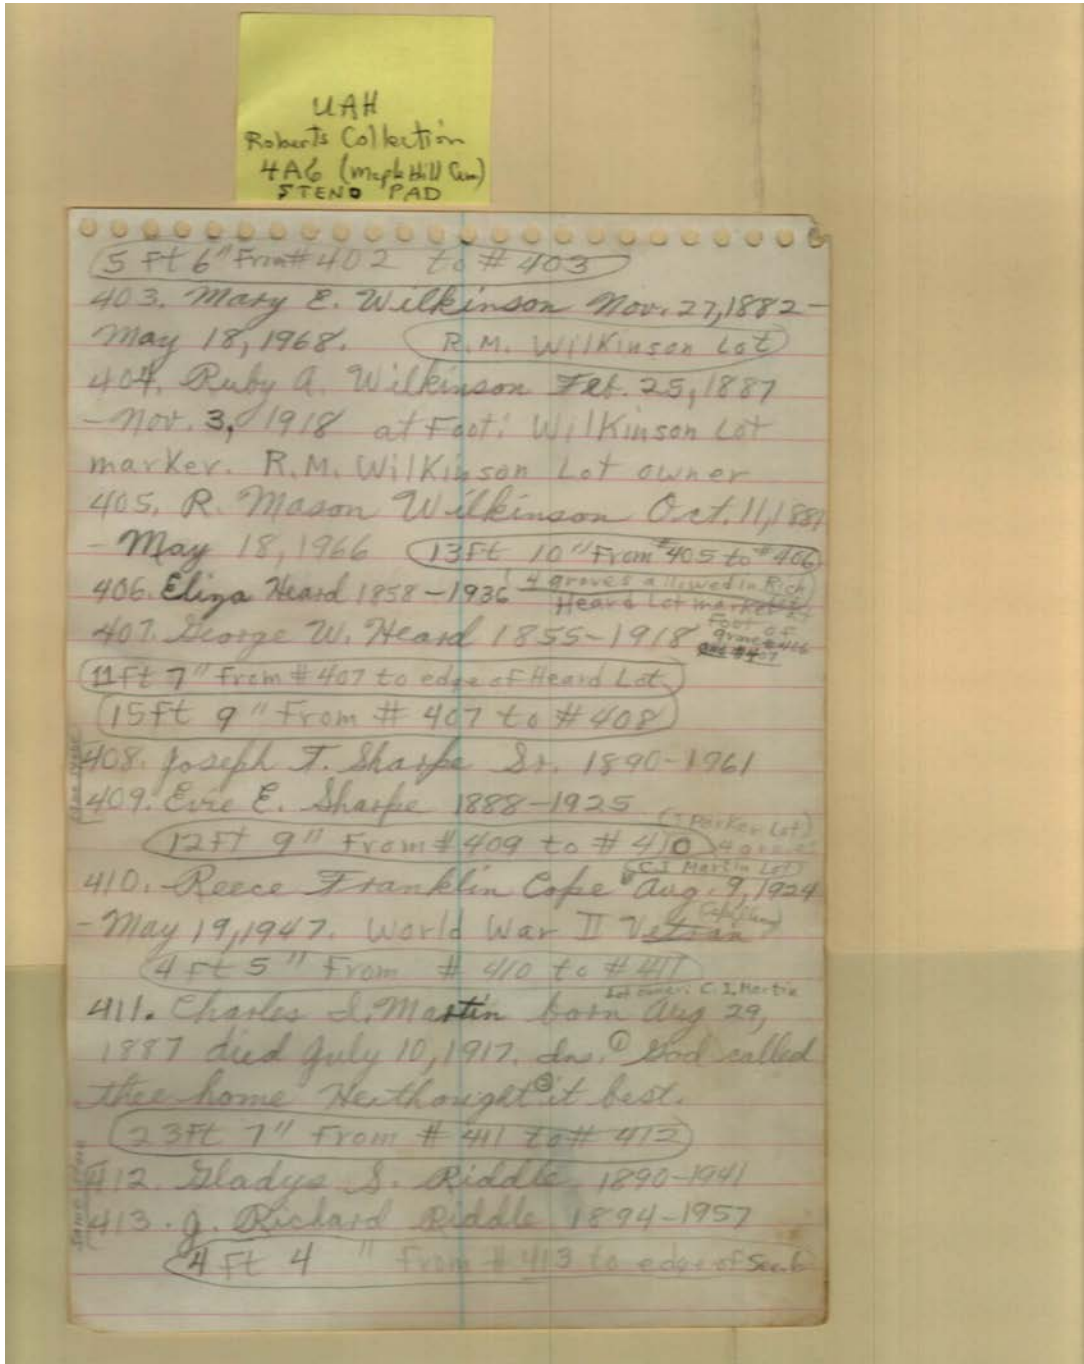 UAH
Roberts Collection
4A6 (Maple Hill Cem)
STENO PAD
5 Ft 6" From # 402 to # 403
403. Mary E. Wilkinson Nov. 27, 1882 -
May 18, 1968. R.M. Wilkinson Lot
404. Ruby A. Wilkinson Feb. 25, 1887
- Nov. 3, 1918 at Foot: Wilkinson Lot
marker. R.M. Wilkinson Lot owner
405. R. Mason Wilkinson Oct. 11, 1881
- May 18, 1966 13 Ft 10" From # 405 to # 406
4 graves allowed in Rich
406. Eliza Heard 1858 - 1936 Heard Lot marker
407. George W. Heard 1855 - 1918 Foot of
grave # 406
and # 407
11 Ft 7" From # 407 to edge of Heard Lot
15 Ft 9" From # 407 to # 408
408. Joseph T. Sharpe Sr. 1890 - 1961
409. Evie E. Sharpe 1888 - 1925
(J Parker Lot)
12 Ft 9" From # 409 to # 410 4 graves
(C.I Martin Lot)
410. Reece Franklin Cope Aug. 9, 1924
- May 19, 1947. World War II Vetran
4 Ft 5" From # 410 to # 411
Lot owner: C.I. Martin
411. Charles I. Martin born Aug 29,
1887 died July 10, 1917. Ins. ① God called
thee home He thought ② it best.
23 Ft 7" From # 411 to # 412
412. Gladys S. Riddle 1890 - 1941
Same stone
413. J. Richard Riddle 1894 - 1957
4 Ft 4 " From # 413 to edge of Sec. 6